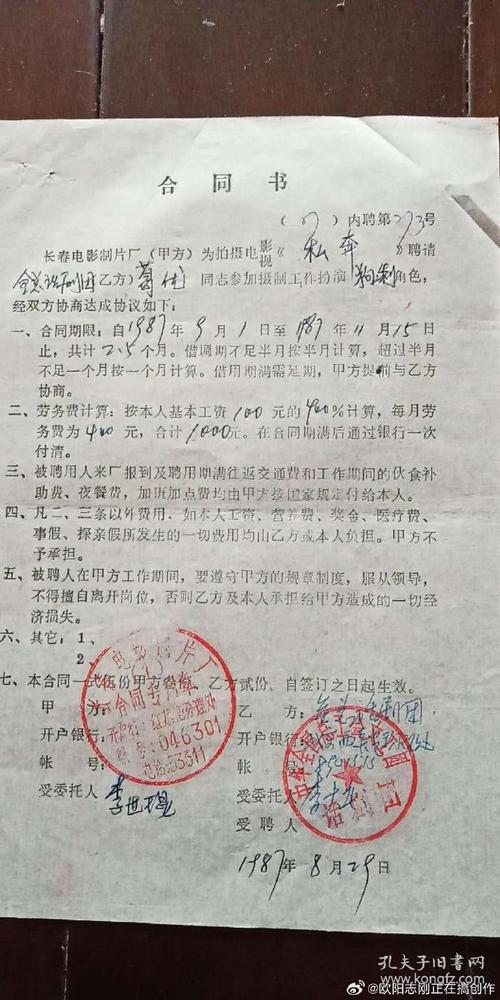 合同书
(87)内聘第273号
长春电影制片厂(甲方)为拍摄电影视《私奔》聘请
全总话剧团(乙方)葛优同志参加摄制工作扮演狗剩角色,
经双方协商达成协议如下:
一、合同期限:自1987年9月1日至1987年11月15日
止,共计2.5个月。借调期不足半月按半月计算,超过半月
不足一个月按一个月计算。借用期满需延期,甲方提前与乙方
协商。
二、劳务费计算:按本人基本工资100元的400%计算,每月劳
务费为400元,合计1000元。在合同期满后通过银行一次
付清。
三、被聘用人来厂报到及聘用期满往返交通费和工作期间的伙食补
助费、夜餐费,加班加点费均由甲方按国家规定付给本人。
四、凡二、三条以外费用.如本人工资、营养费、奖金、医疗费、
事假、探亲假所发生的一切费用均由乙方或本人负担。甲方不
予承担。
五、被聘人在甲方工作期间,要遵守甲方的规章制度,服从领导,
不得擅自离开岗位,否则乙方及本人承担给甲方造成的一切经
济损失。
六、其它:1、
2、
七、本合同一式伍份甲方叁份,乙方贰份,自签订之日起生效。
甲方: 乙方:全总话剧团
开户银行: 开户银行:
帐号: 帐号:
受委托人:李世 受委托人:李
受聘人
1987年8月29日
电影制片厂
合同专用章
046301
电话:53311
话剧团
孔夫子旧书网
kongfz.com
@欧阳志刚正在搞创作